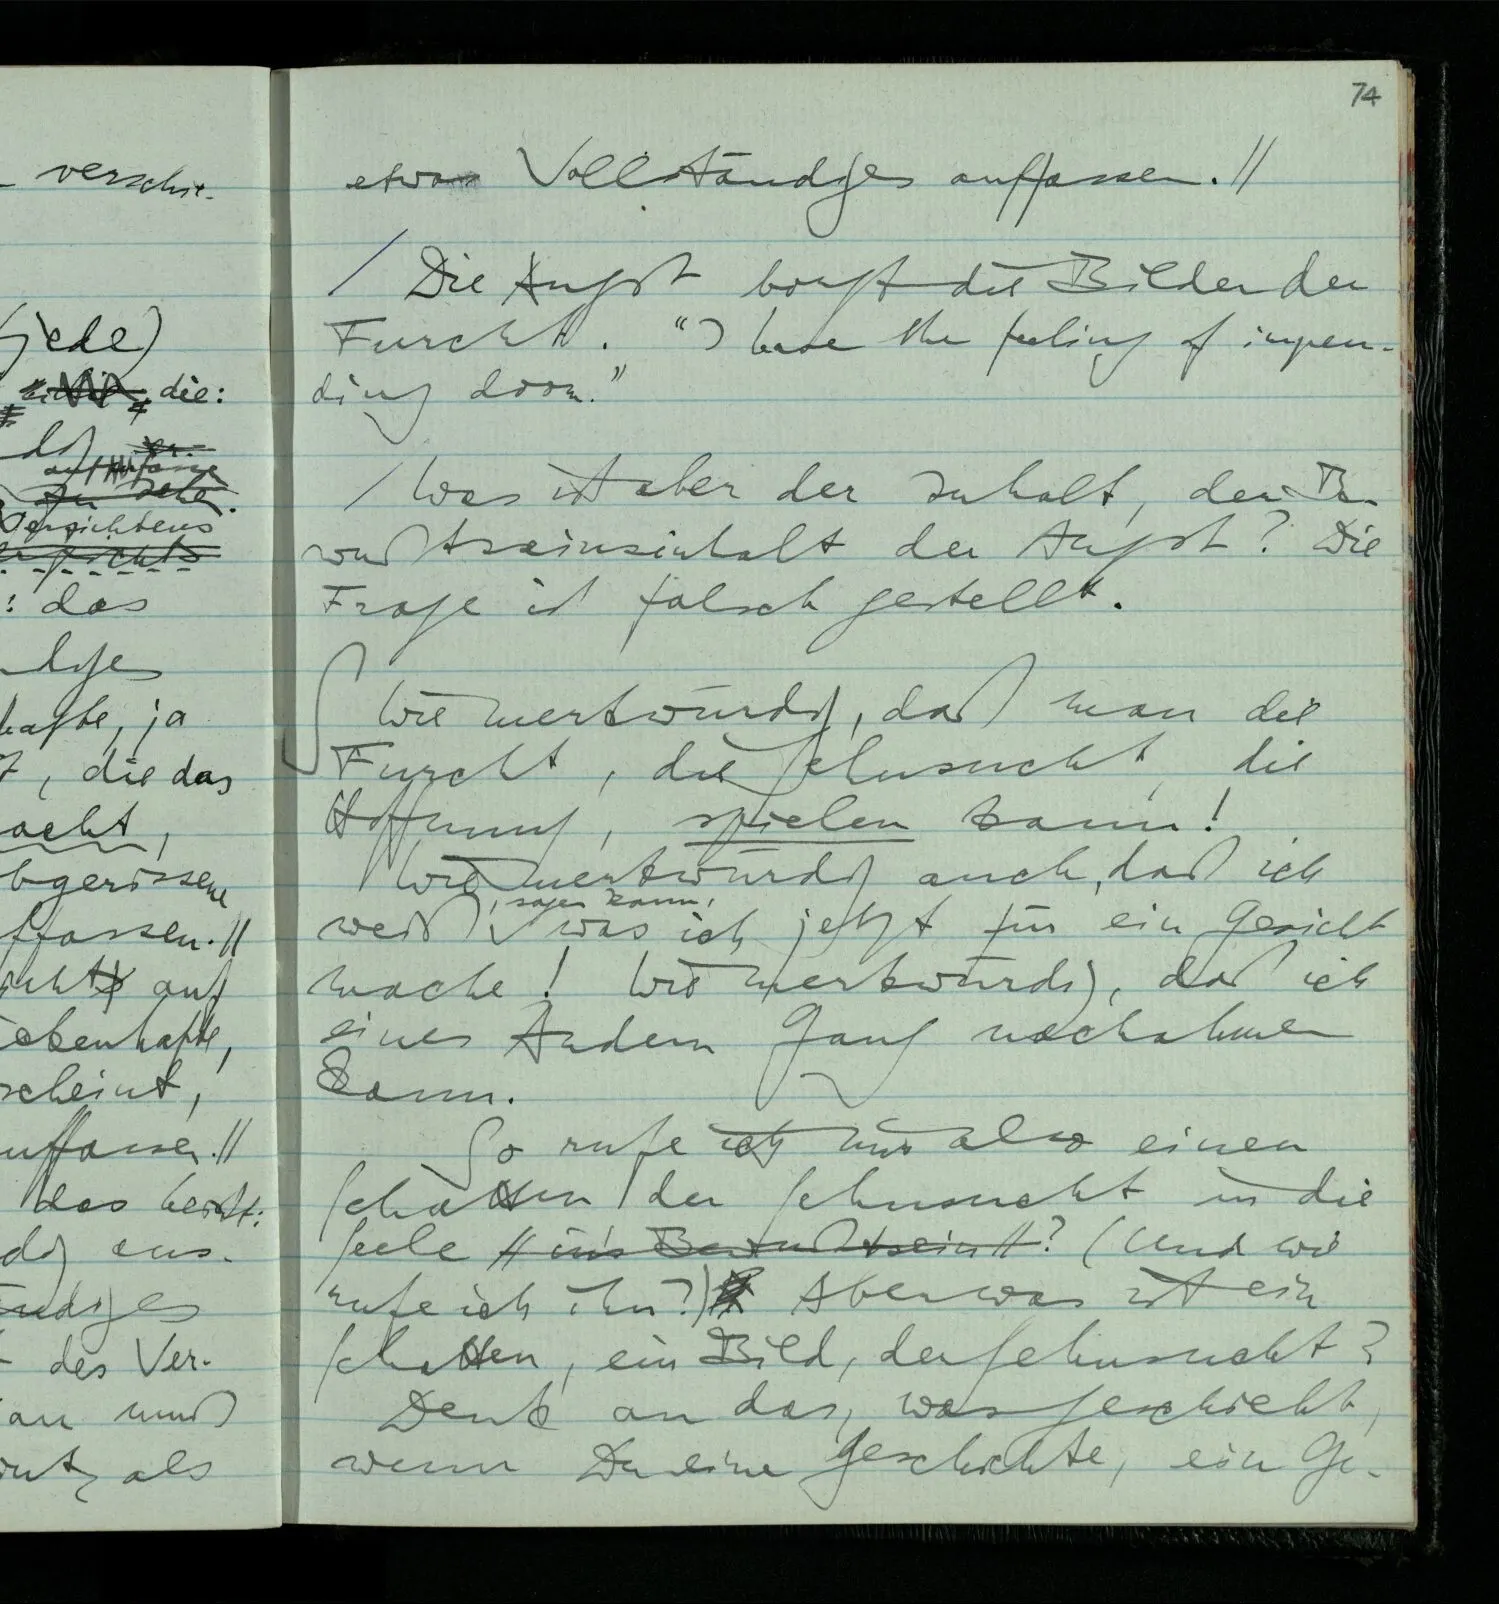 verschie-
jede)
die:
Verzichtens
: das
hafte, ja
, die das
acht,
bgerissene
ffassen. //
auf
ckenhafte,
scheint,
uffassen. //
das heißt:
des Ver-
man muß
als
74
etwas Vollständiges auffassen. //
/ Die Angst borgt die Bilder der
Furcht. “I have the feeling of impen-
ding doom.”
/ Was ist aber der Inhalt, der Be-
wußtseinsinhalt der Angst? Die
Frage ist falsch gestellt.
Wie merkwürdig, daß man die
Furcht, die Sehnsucht, die
Hoffnung, spielen kann!
Wie merkwürdig auch, daß ich
, sagen kann,
weiß was ich jetzt für ein Gesicht
mache! Wie merkwürdig, daß ich
eines Andern Gang nachahmen
kann.
So rufe ich mir also einen
Schatten der Sehnsucht in die
Seele // in's Bewußtsein //? (Und wie
rufe ich ihn?) Aber was ist ein
Schatten, ein Bild, der Sehnsucht?
Denk an das, was geschieht,
wenn Du eine Geschichte, ein Ge-